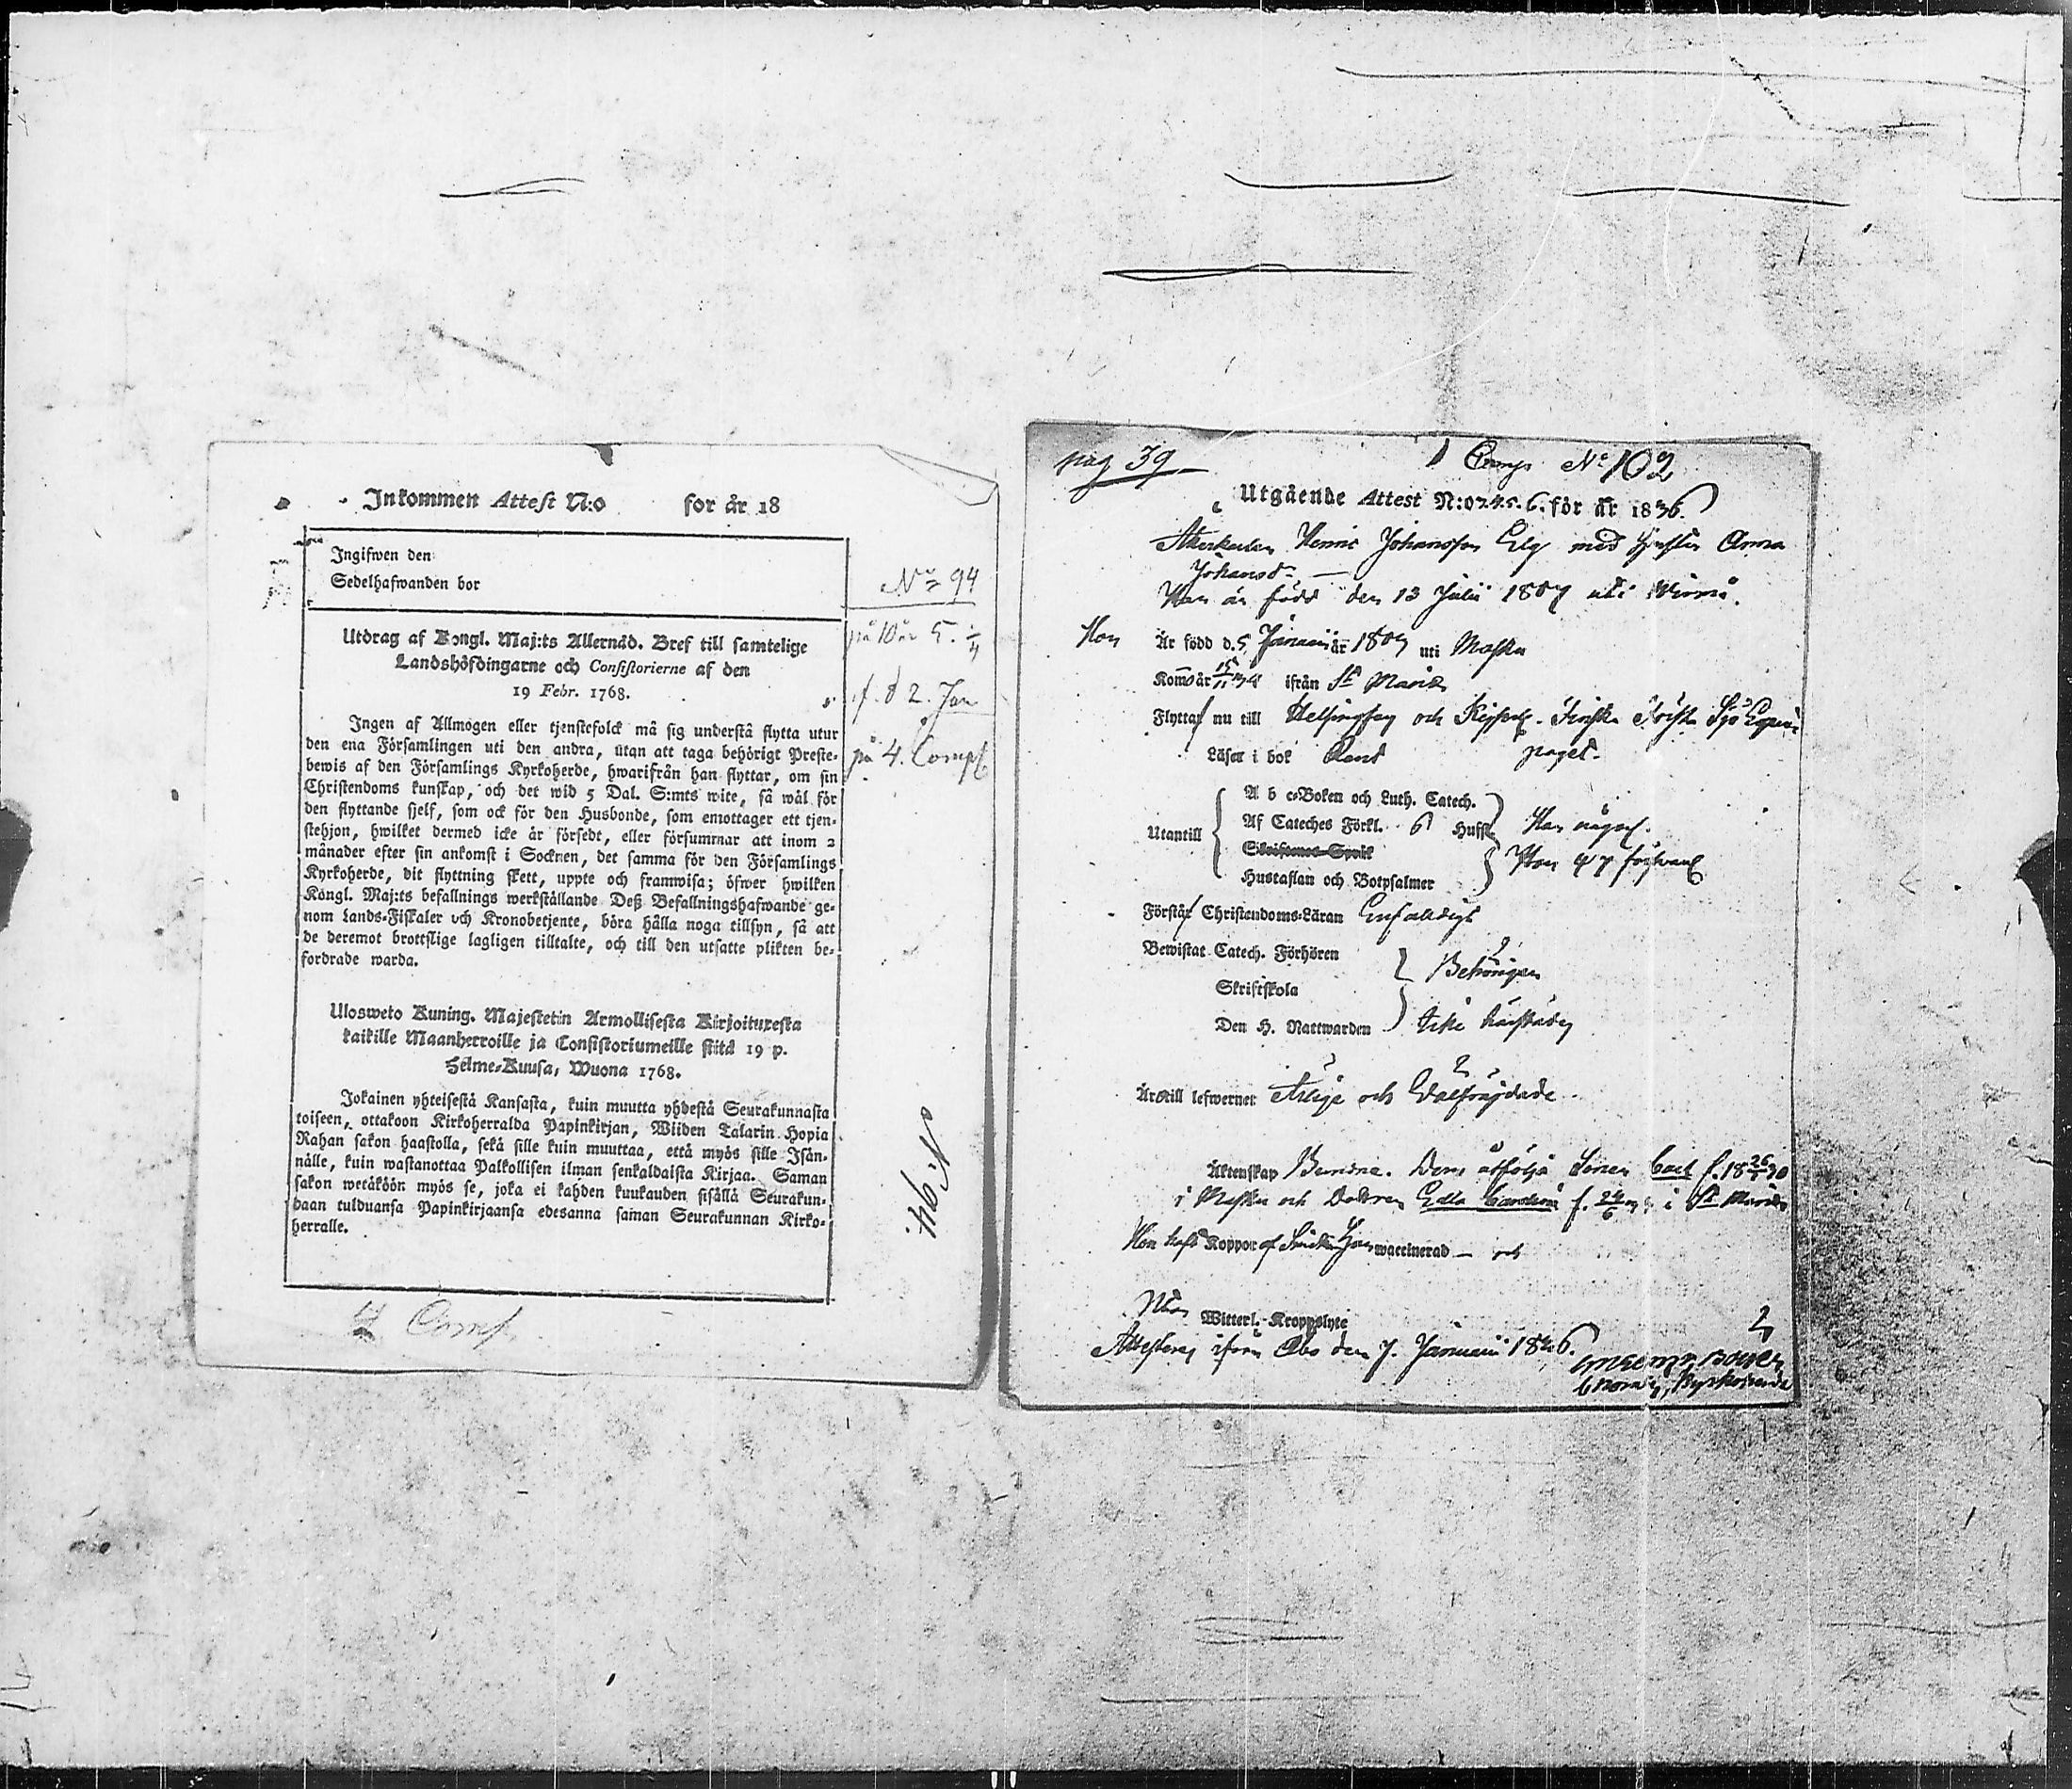 Inkommen Attest N:o for år 18
Ingifwen den
Sedelhafwanden bor
No 94
Utdrag af Kongl. Maj:ts Allernåd. Bref till samtelige
Landshöfdingarne och Consistorierne af den
19 Febr. 1768.
f. d 2. Jan
på 4. Comp
Ingen af Allmogen eller tjenstefolck må sig understå flytta utur
den ena Församlingen uti den andra, utan att taga behörigt Preste-
bewis af den Församlings Kyrkoherde, hwarifrån han flyttar, om sin
Christendoms kunskap, och det wid 5 Dal. S:mts wite, så wål för
den flyttande sjelf, som ock för den Husbonde, som emottager ett tjen-
stehjon, hwilket dermed icke är försedt, eller försummar att inom 2
månader efter sin ankomst i Socknen, det samma för den Församlings
Kyrkoherde, dit flyttning skett, uppte och framwisa; öfwer hwilken
Kongl. Maj:ts befallnings werkställande Deß Befallningshafwande ge-
nom Lands-Fiskaler och Kronobetjente, böra hålla noga tillsyn, så att
de deremot brottslige lagligen tilltalte, och till den utsatte plikten be-
fordrade warda.
Ulosweto Kuning. Majestetin Armollisesta Kirjoituxesta
kaikille Maanherroille ja Consistoriumeille siitä 19 p.
Helme-Kuusa, Wuona 1768.
Jokainen yhteisestä Kansasta, kuin muutta yhdestä Seurakunnasta
toiseen, ottakoon Kirkoherralda Papinkirjan, Wiiden Talarin Hopia
Rahan sakon haastolla, sekä sille kuin muuttaa, että myös sille Isän-
nälle, kuin wastanottaa Palkollisen ilman senkaldaista Kirjaa. Saman
sakon wetäköön myös se, joka ei kahden kuukauden sisällä Seurakun-
daan tulduansa Papinkirjaansa edesanna saman Seurakunnan Kirko-
herralle.
No 94.
4 Comp.
pag 39
1 Comp No 102
Utgående Attest N:o 2.4.5.6. för år 1836.
Henric Johansson Elg med Hustru Anna
Johansdr
Han är född den 13 Julii 1807 uti Wirmo.
Hon Är född d. 5 Januari år 1809 uti Masku
Kom år ifrån St Marie
Flytta nu till Helsingfors och Finska
Läser i bok Rent
Utantill
A b c-Boken och Luth. Catech.
Af Cateches Förkl. 6 Hufst
Skriftenes Språk
Hustaflan och Botpsalmer
Förstår Christendoms-Läran Enfaldigt
Bewistat Catech. Förhören
Behörigen
Skriftskola
Den H. Nattwarden icke härstädes
Är till lefwernet Ärlige och Wälfrägdade
Äktenskap Bundne. Dem åtfölja Sonen Carl f.
i Masku och Dottren Edla Carolina f. i St Marie
Hon haft Koppor wattinerad och
Witterl. Kroppslyte
Attesteras ifrån Åbo den 7. Januarii 1836.
Kyrkoherde